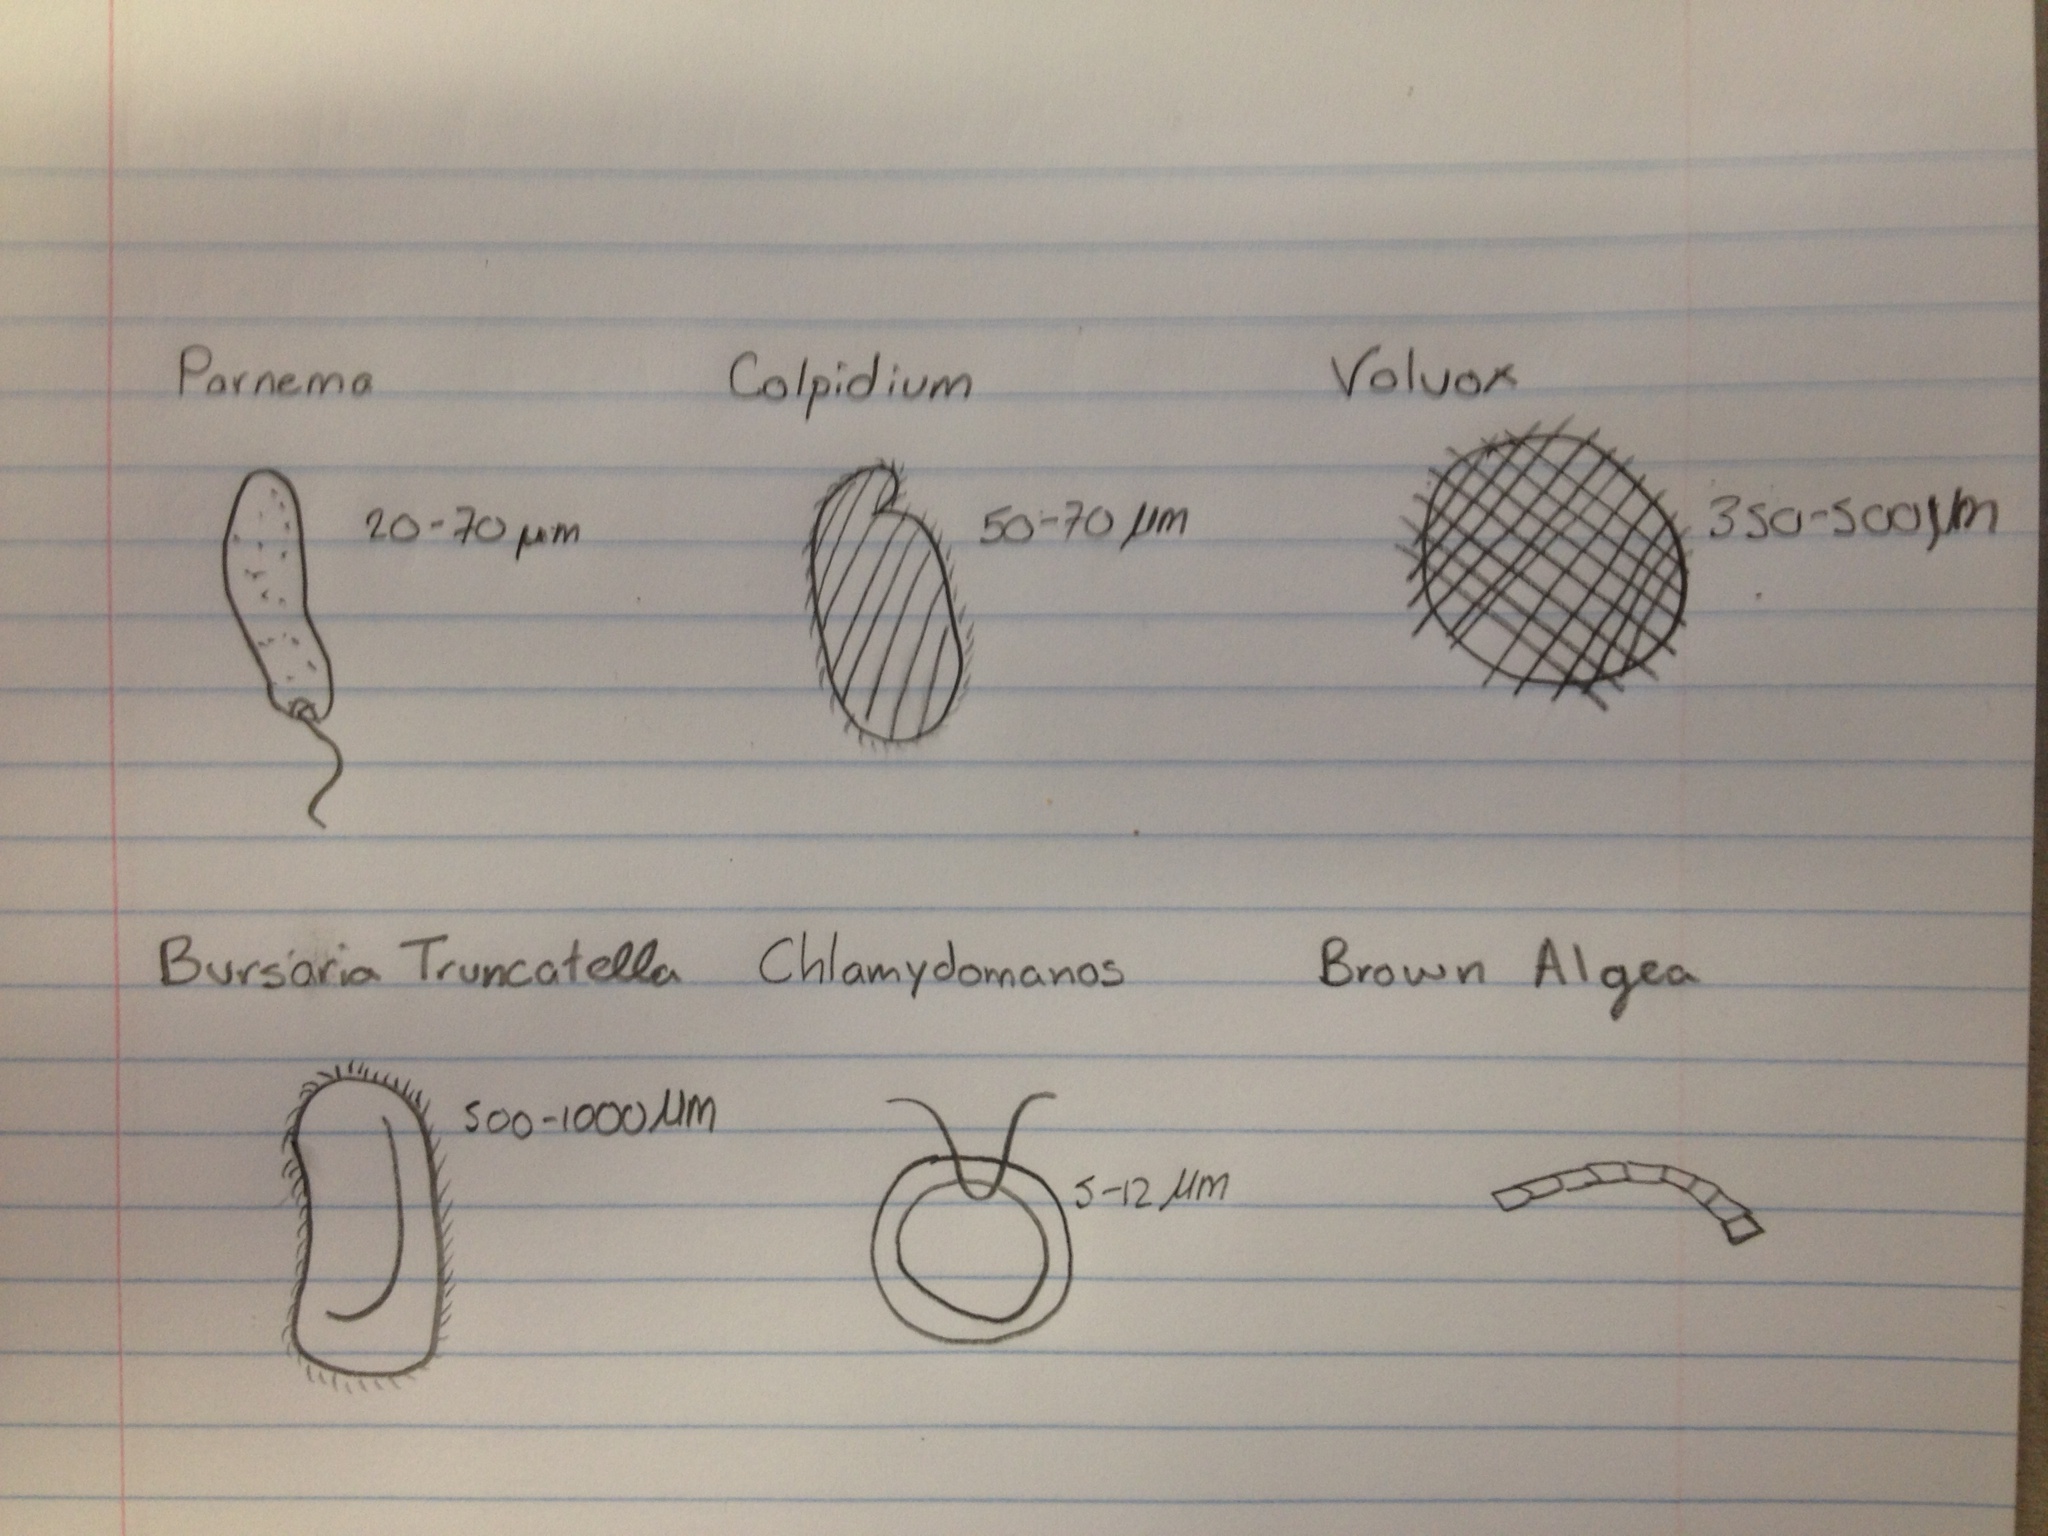 Parnema
Colpidium
Volvox
20-70 µm
50-70 µm
350-500µm
Bursaria Truncatella
Chlamydomanos
Brown Algea
500-1000 µm
5-12 µm